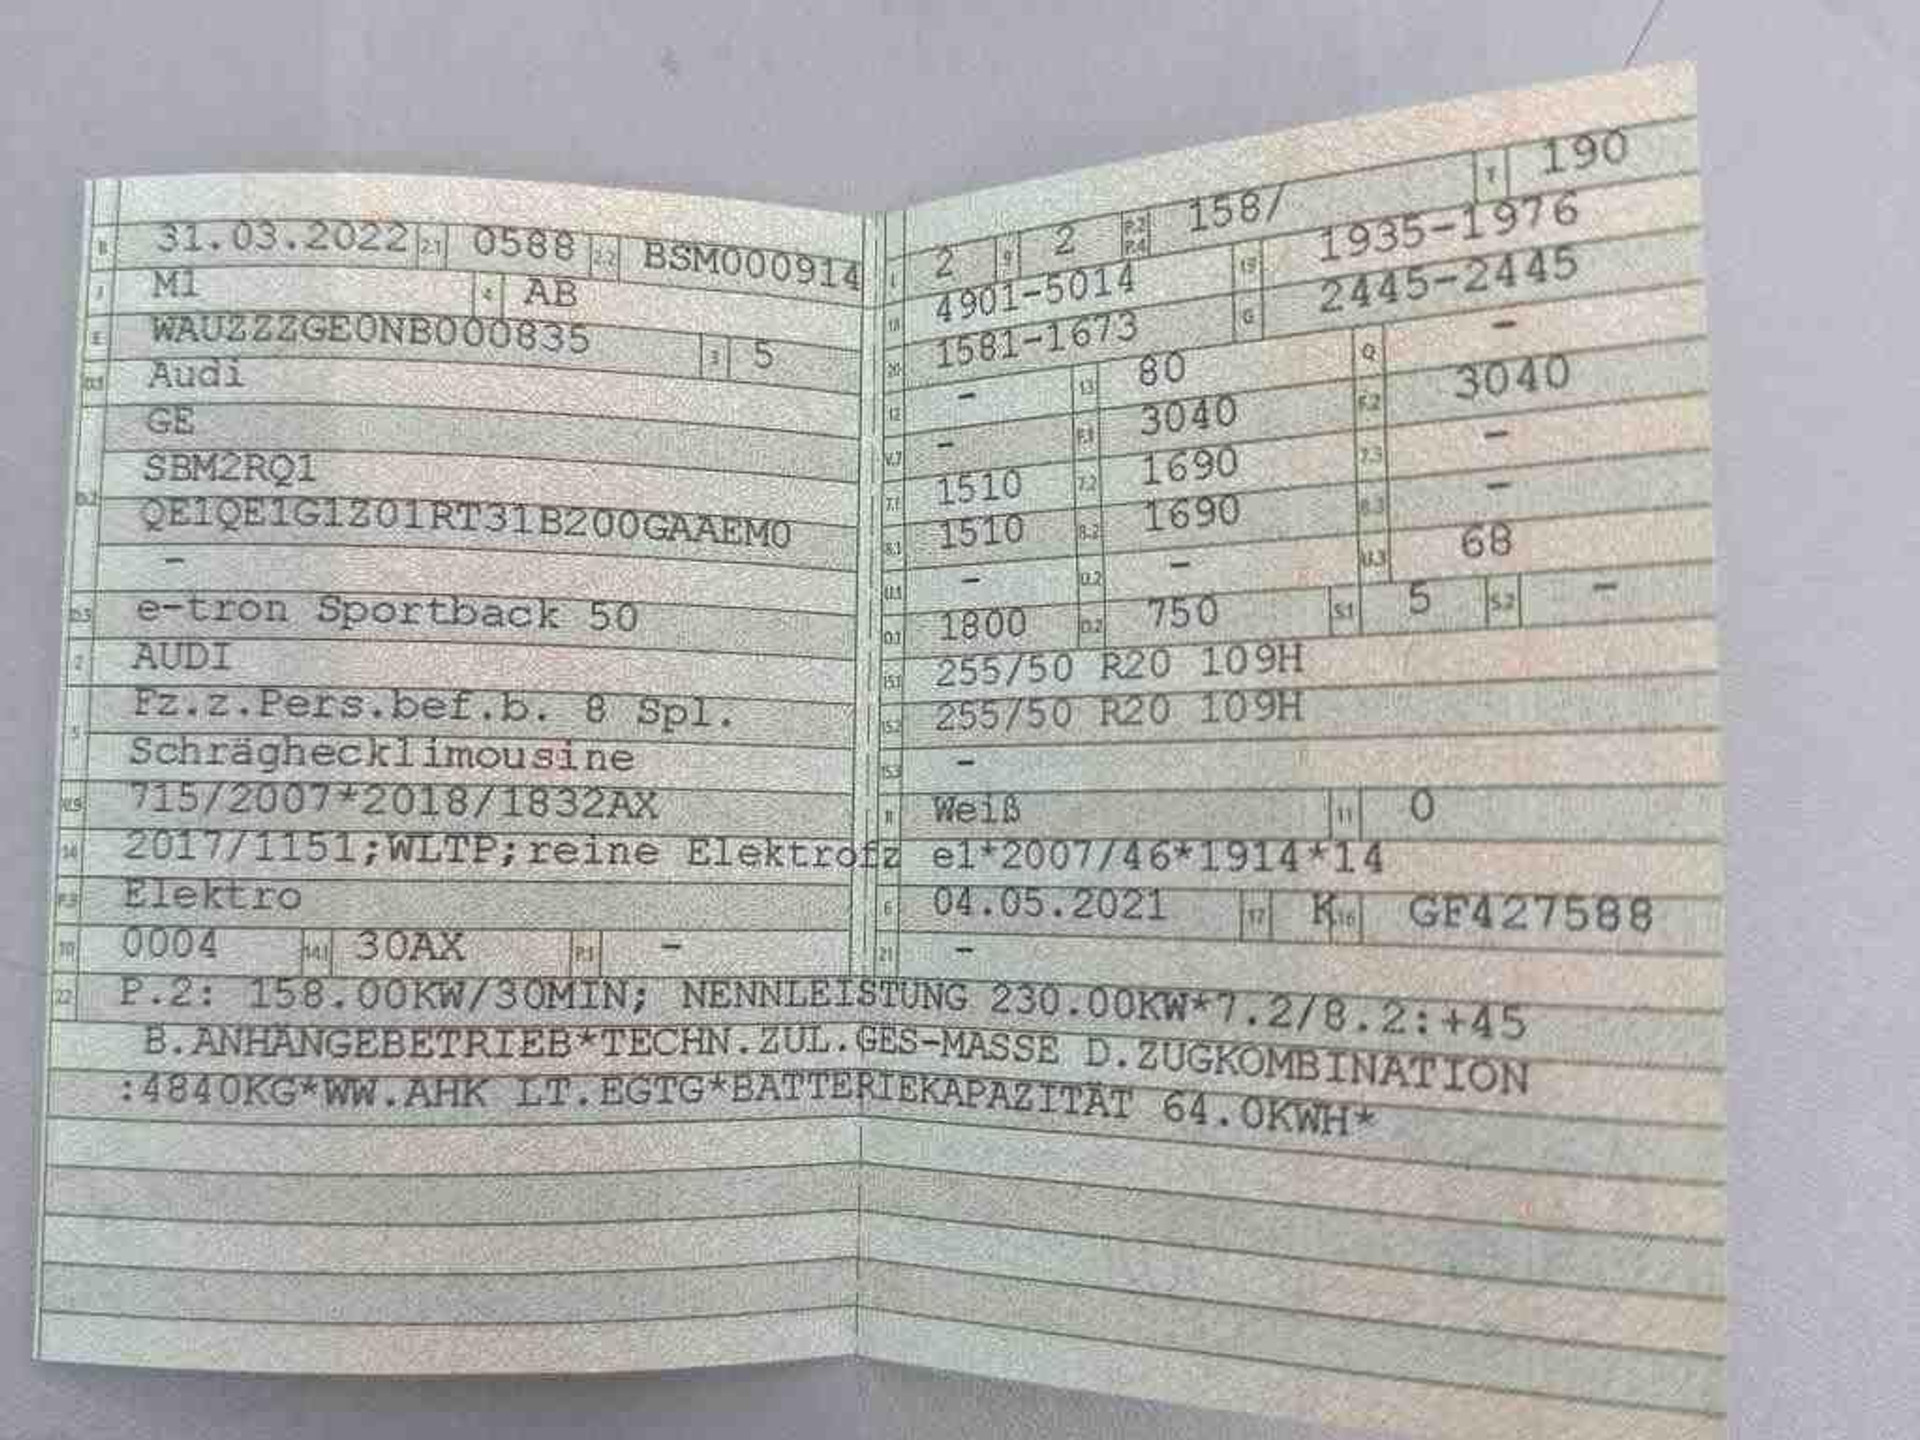 B 31.03.2022 2.1 0588 2.2 BSM000914
J M1 4 AB
E WAUZZZGE0NB000835 3 5
D.1 Audi
GE
D.2 SBM2RQ1
QE1QE1G1Z01RT31B200GAAEM0
-
D.3 e-tron Sportback 50
2 AUDI
5 Fz.z.Pers.bef.b. 8 Spl.
Schräghecklimousine
V.9 715/2007*2018/1832AX
14 2017/1151;WLTP;reine Elektrofz
P.3 Elektro
10 0004 14.1 30AX P.1 -
L 2 9 2 P.2 P.4 158/ T 190
18 4901-5014 19 1935-1976
20 1581-1673 G 2445-2445
12 - 13 80 Q -
V.7 - F.1 3040 F.2 3040
7.1 1510 7.2 1690 7.3 -
8.1 1510 8.2 1690 8.3 -
U.1 - U.2 - U.3 68
O.1 1800 O.2 750 S.1 5 S.2 -
15.1 255/50 R20 109H
15.2 255/50 R20 109H
15.3 -
R Weiß 11 0
K e1*2007/46*1914*14
6 04.05.2021 17 K 16 GF427588
21 -
22 P.2: 158.00KW/30MIN; NENNLEISTUNG 230.00KW*7.2/8.2:+45
B.ANHÄNGEBETRIEB*TECHN.ZUL.GES-MASSE D.ZUGKOMBINATION
:4840KG*WW.AHK LT.EGTG*BATTERIEKAPAZITÄT 64.0KWH*